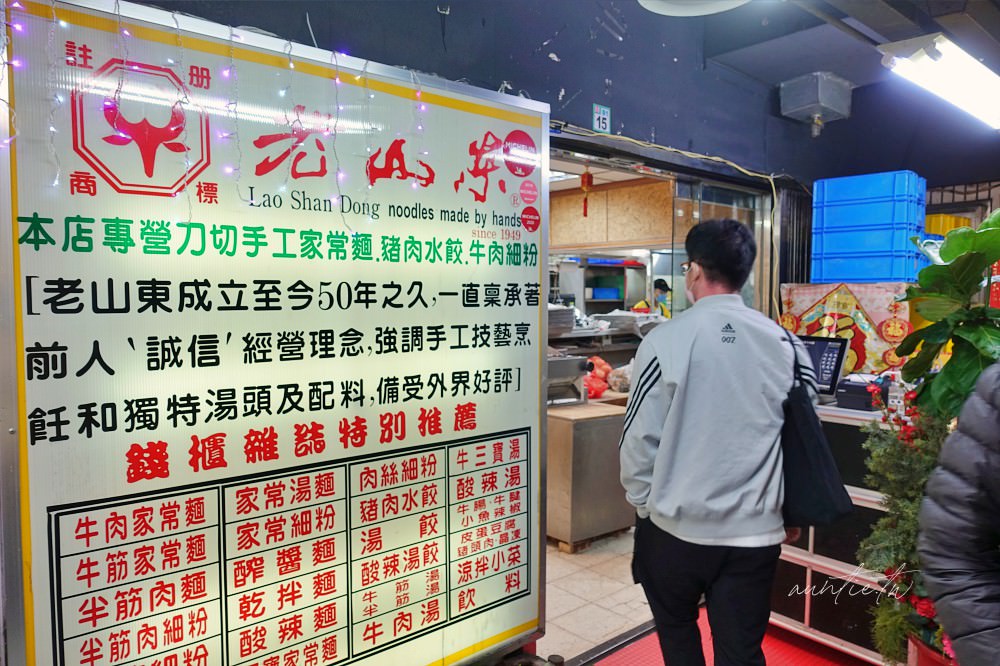 註册
商標
老山東
MICHELIN
®
Lao Shan Dong noodles made by hands
since 1949
本店專營刀切手工家常麵.豬肉水餃.牛肉細粉
[老山東成立至今50年之久,一直稟承著
前人‵誠信′經營理念,強調手工技藝烹
飪和獨特湯頭及配料,備受外界好評]
錢櫃雜誌特別推薦
牛肉家常麵
牛筋家常麵
半筋肉麵
半筋肉細粉
家常湯麵
家常細粉
酢醬麵
乾拌麵
酸辣麵
家常麵
肉絲細粉
豬肉水餃
湯餃
酸辣湯餃
牛筋湯
半筋湯
牛肉湯
牛三寶湯
酸辣湯
牛腸・牛腱
小魚辣椒
皮蛋豆腐
豬頭肉・晶凍
涼拌小菜
飲料
15
adidas
007
auntietw